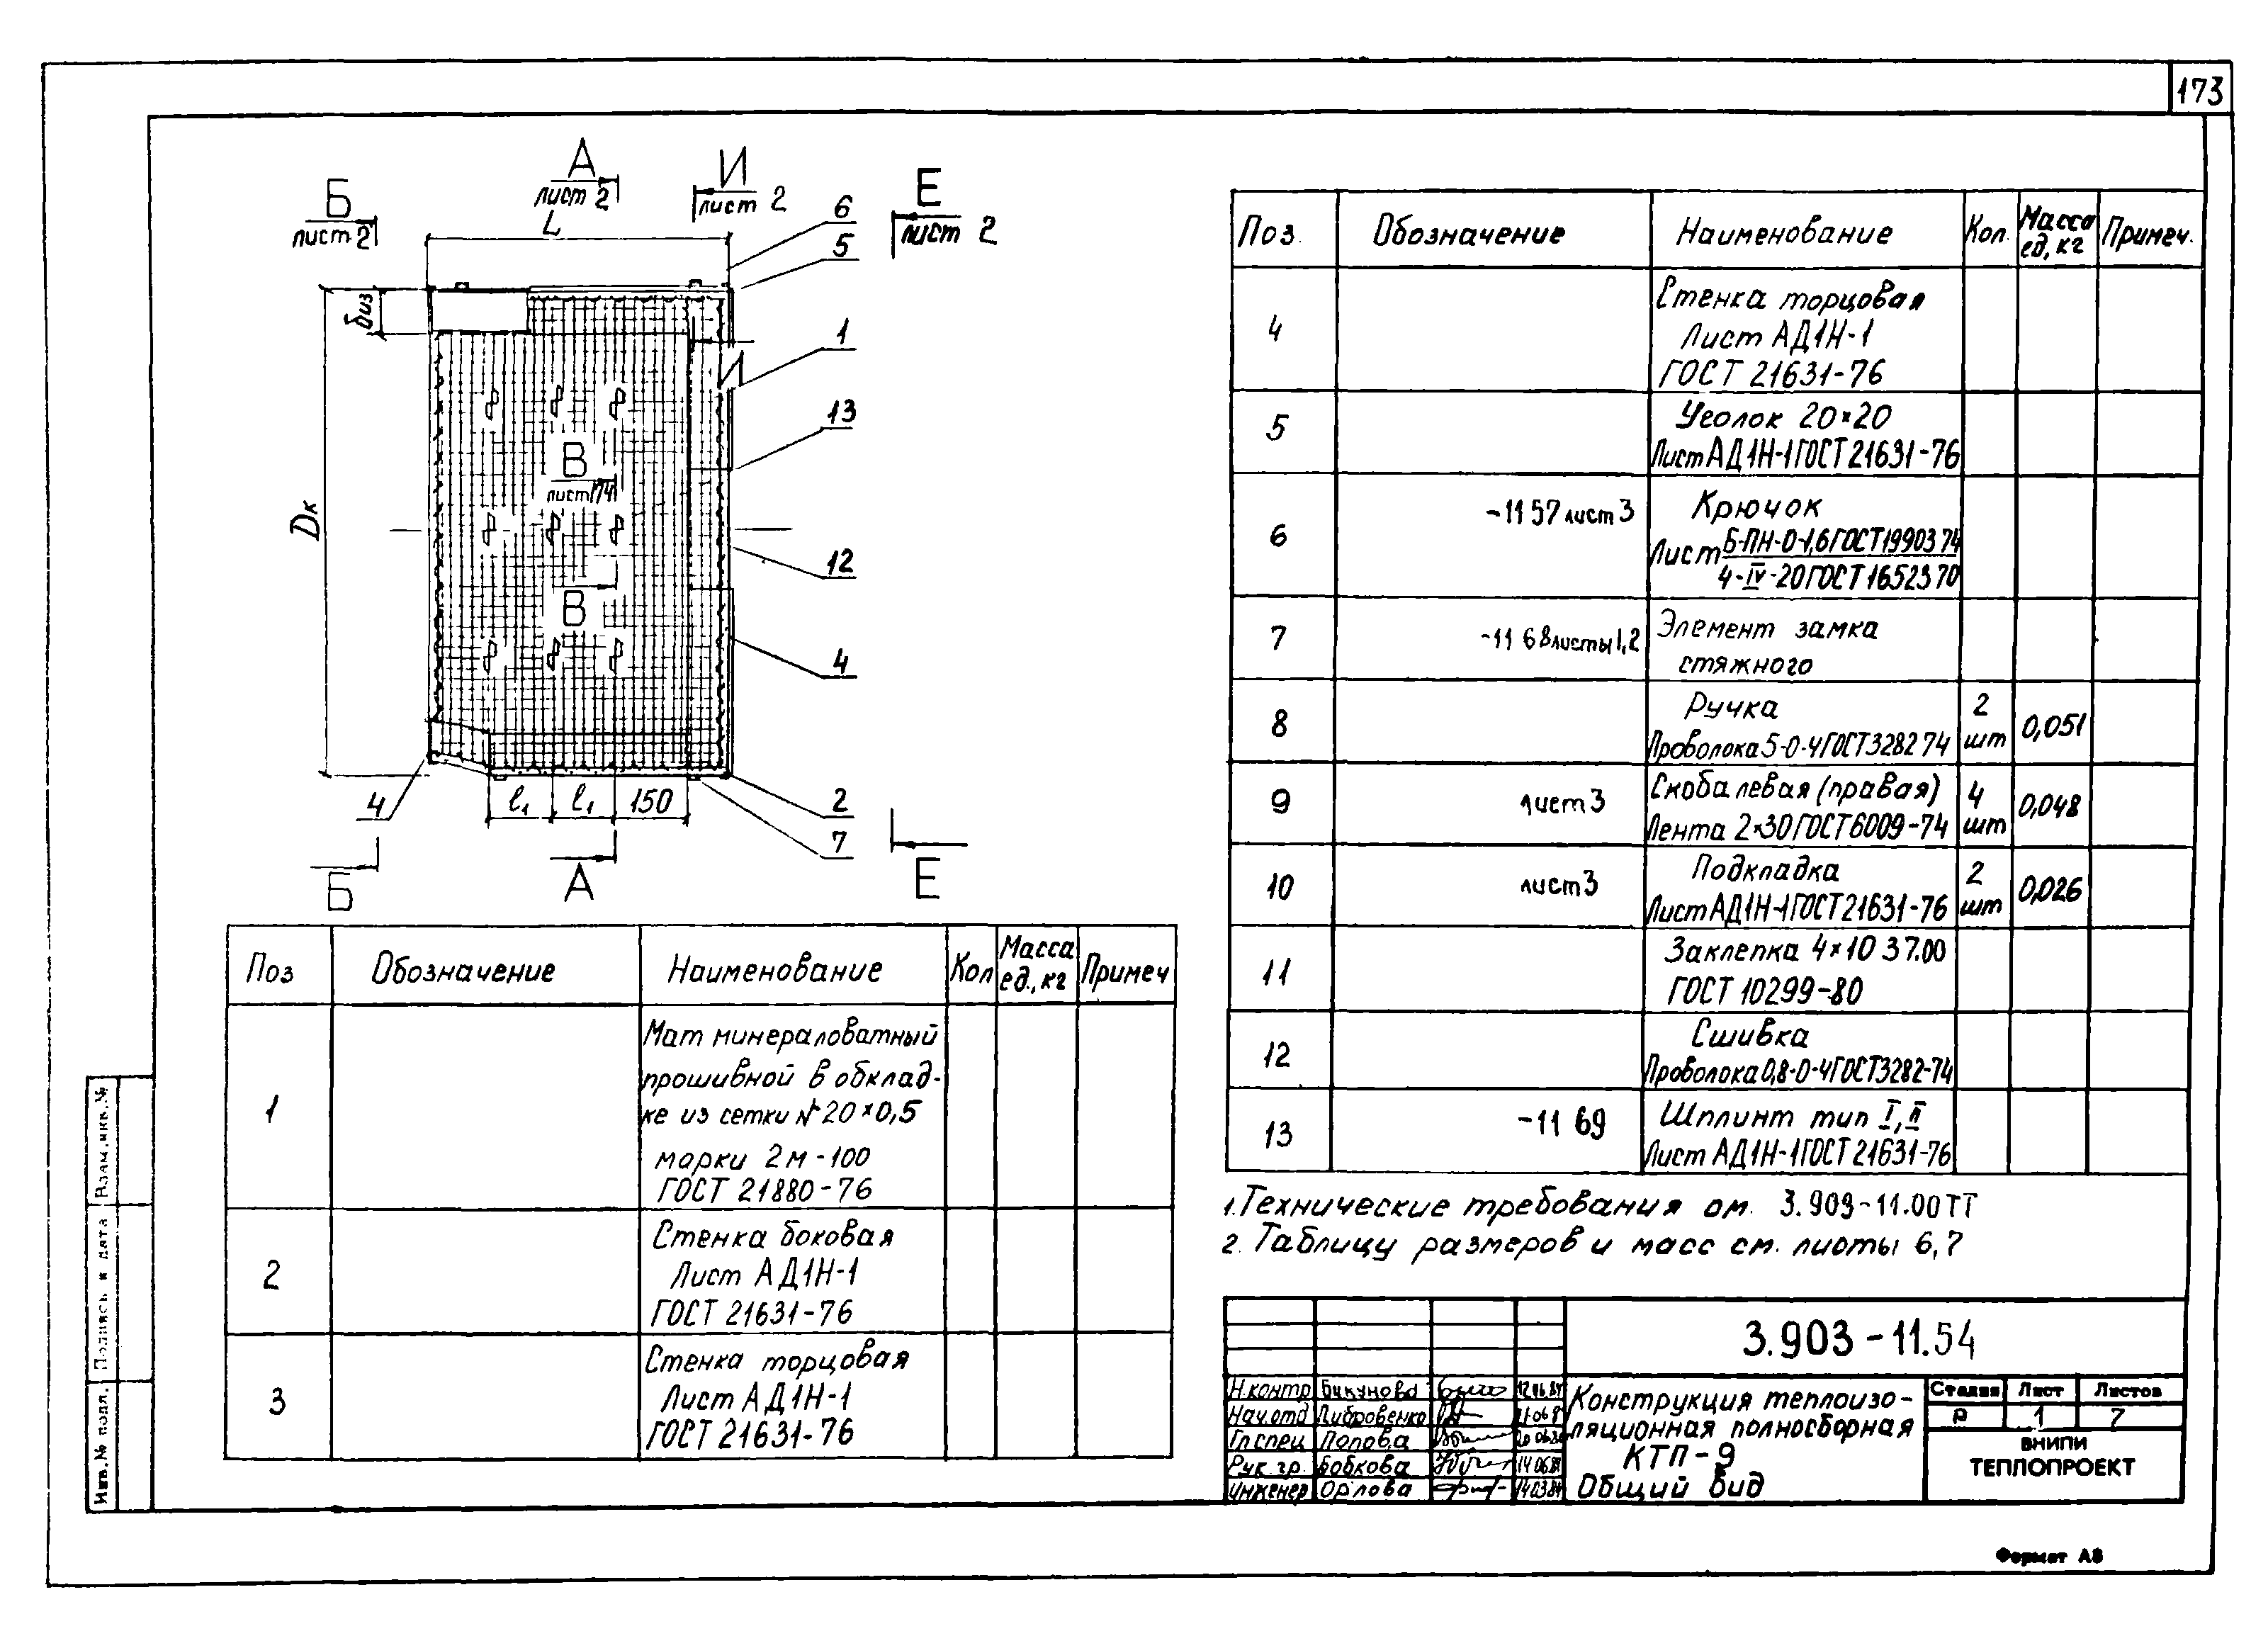 173
А
лист 2
И
лист 2
Б
лист 2
Е
лист 2
L
6
5
1
13
12
4
2
7
4
δиз
Dк
В
лист 174
В
l₁ l₁ 150
Б
А
Е
Поз Обозначение Наименование Кол Масса ед., кг Примеч
1 Мат минераловатный
прошивной в обклад-
ке из сетки №20×0,5
марки 2м-100
ГОСТ 21880-76
2 Стенка боковая
Лист АД1Н-1
ГОСТ 21631-76
3 Стенка торцовая
Лист АД1Н-1
ГОСТ 21631-76
Поз. Обозначение Наименование Кол. Масса ед, кг Примеч.
4 Стенка торцовая
Лист АД1Н-1
ГОСТ 21631-76
5 Уголок 20×20
Лист АД1Н-1 ГОСТ 21631-76
6 -11 57 лист 3 Крючок
Лист Б-ПН-О-1,6 ГОСТ 19903 74
4-IV-20 ГОСТ 16523 70
7 -11 68 листы 1,2 Элемент замка
стяжного
8 Ручка 2 шт 0,051
Проволока 5-О-Ч ГОСТ 3282 74
9 лист 3 Скоба левая (правая) 4 шт 0,048
Лента 2×30 ГОСТ 6009-74
10 лист 3 Подкладка 2 шт 0,026
Лист АД1Н-1 ГОСТ 21631-76
11 Заклепка 4×10 37.00
ГОСТ 10299-80
12 Сшивка
Проволока 0,8-О-Ч ГОСТ 3282-74
13 -11 69 Шплинт тип I, II
Лист АД1Н-1 ГОСТ 21631-76
1. Технические требования см. 3.903-11.00 ТТ
2. Таблицу размеров и масс см. листы 6, 7
3.903-11.54
Н.контр Бикунова 12.06.84
Нач.отд Либровенко
Гл спец Попова
Рук. гр. Бобкова 14.06.84
инженер Орлова 14.03.84
Конструкция теплоизо-
ляционная полносборная
КТП-9
Общий вид
Стадия Лист Листов
Р 1 7
ВНИПИ
ТЕПЛОПРОЕКТ
Формат А3
Взам.инв.№
Подпись и дата
Инв.№ подл.